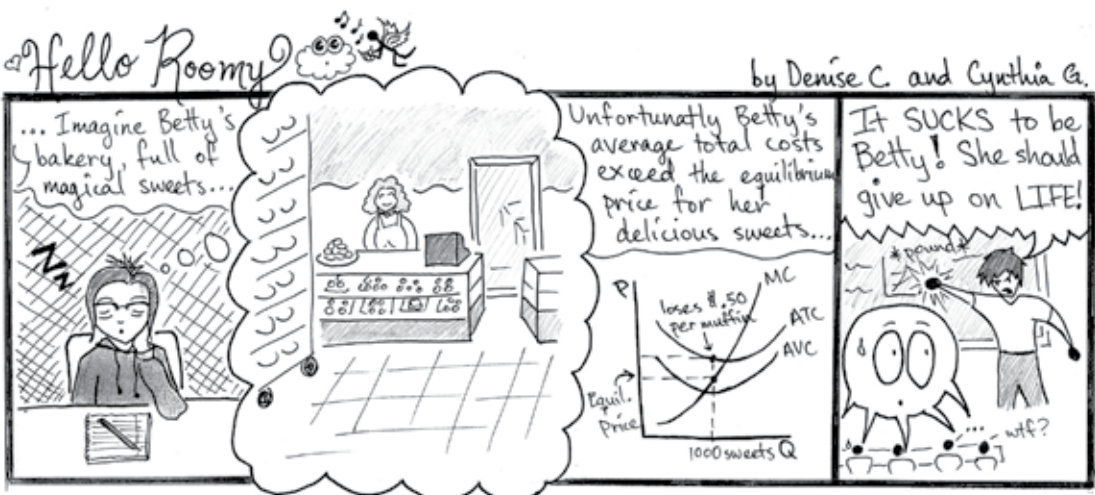 Hello Roomy
by Denise C. and Cynthia G.
... Imagine Betty's
bakery, full of
magical sweets...
ZZZ
Unfortunatly Betty's
average total costs
exceed the equilibrium
price for her
delicious sweets...
P
MC
loses $.50
per muffin
ATC
AVC
Equil.
Price
1000 sweets Q
It SUCKS to be
Betty! She should
give up on LIFE!
*pound*
...
wtf?